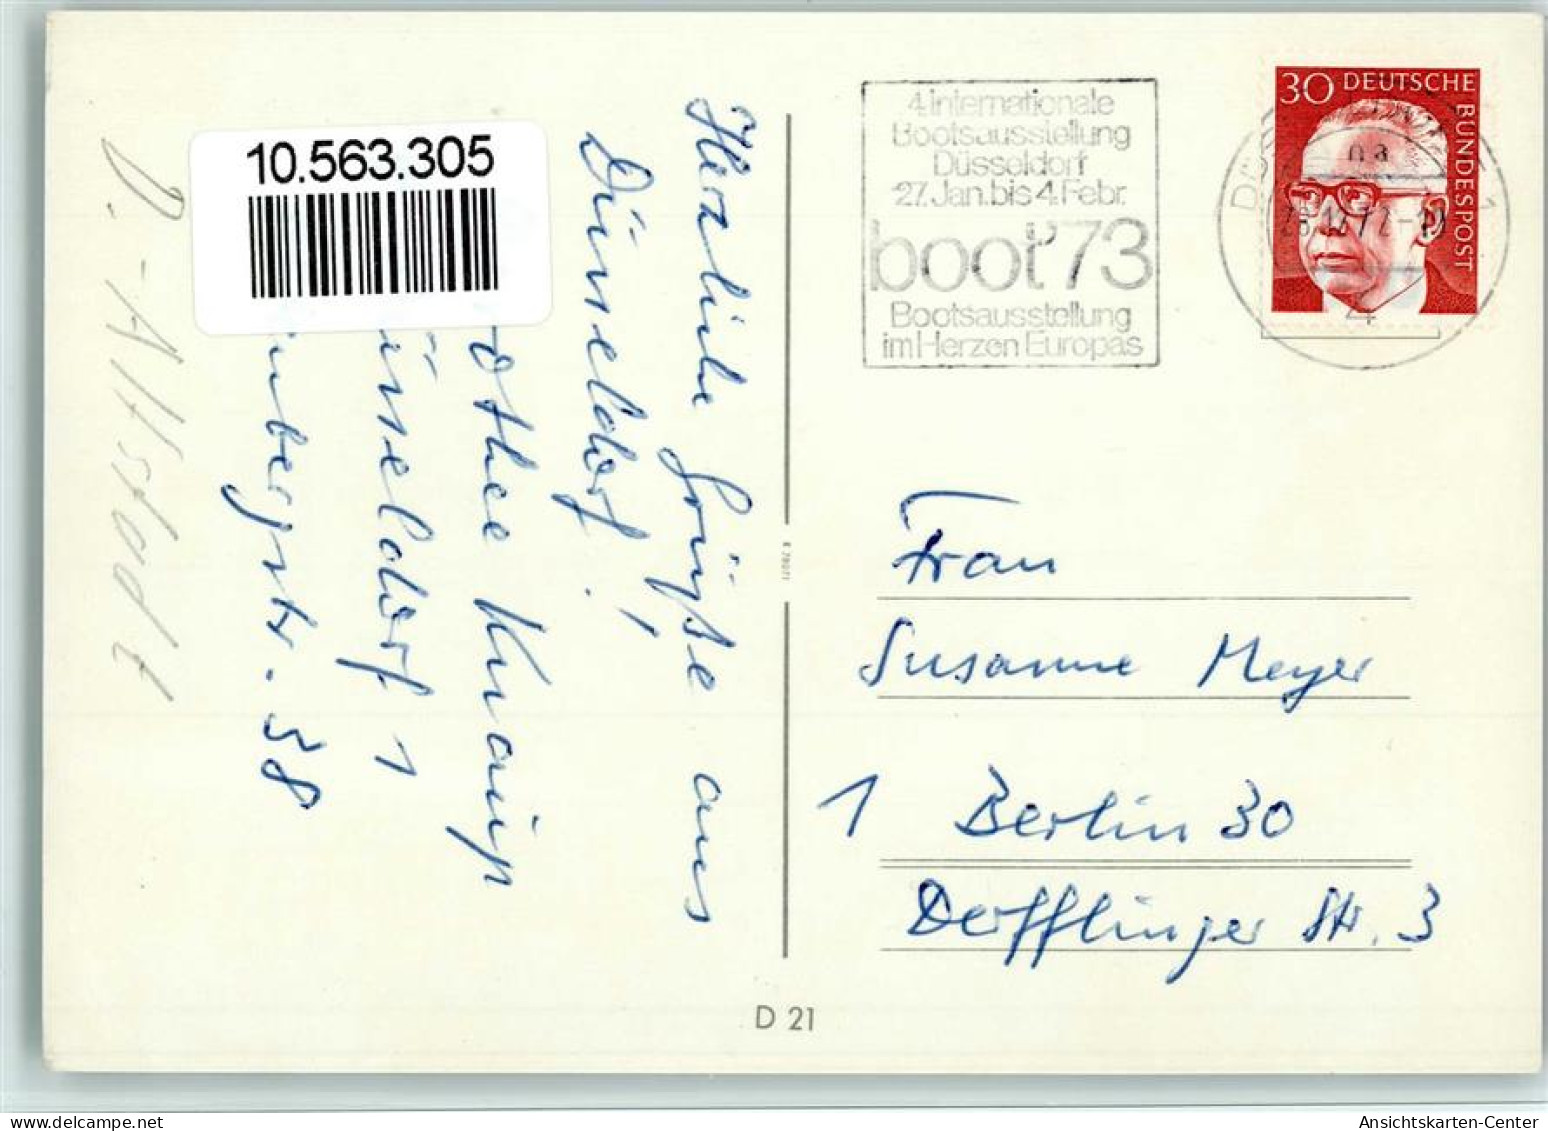 10.563.305
Herzliche Grüße aus
Düsseldorf!
othee Knaup
üsseldorf 1
nbergstr. 38
D.-Altstadt
4. Internationale
Bootsausstellung
Düsseldorf
27. Jan. bis 4. Febr.
boot '73
Bootsausstellung
im Herzen Europas
30 DEUTSCHE
BUNDESPOST
4
Frau
Susanne Meyer
1 Berlin 30
Derfflinger Str. 3
D 21
Ansichtskarten-Center